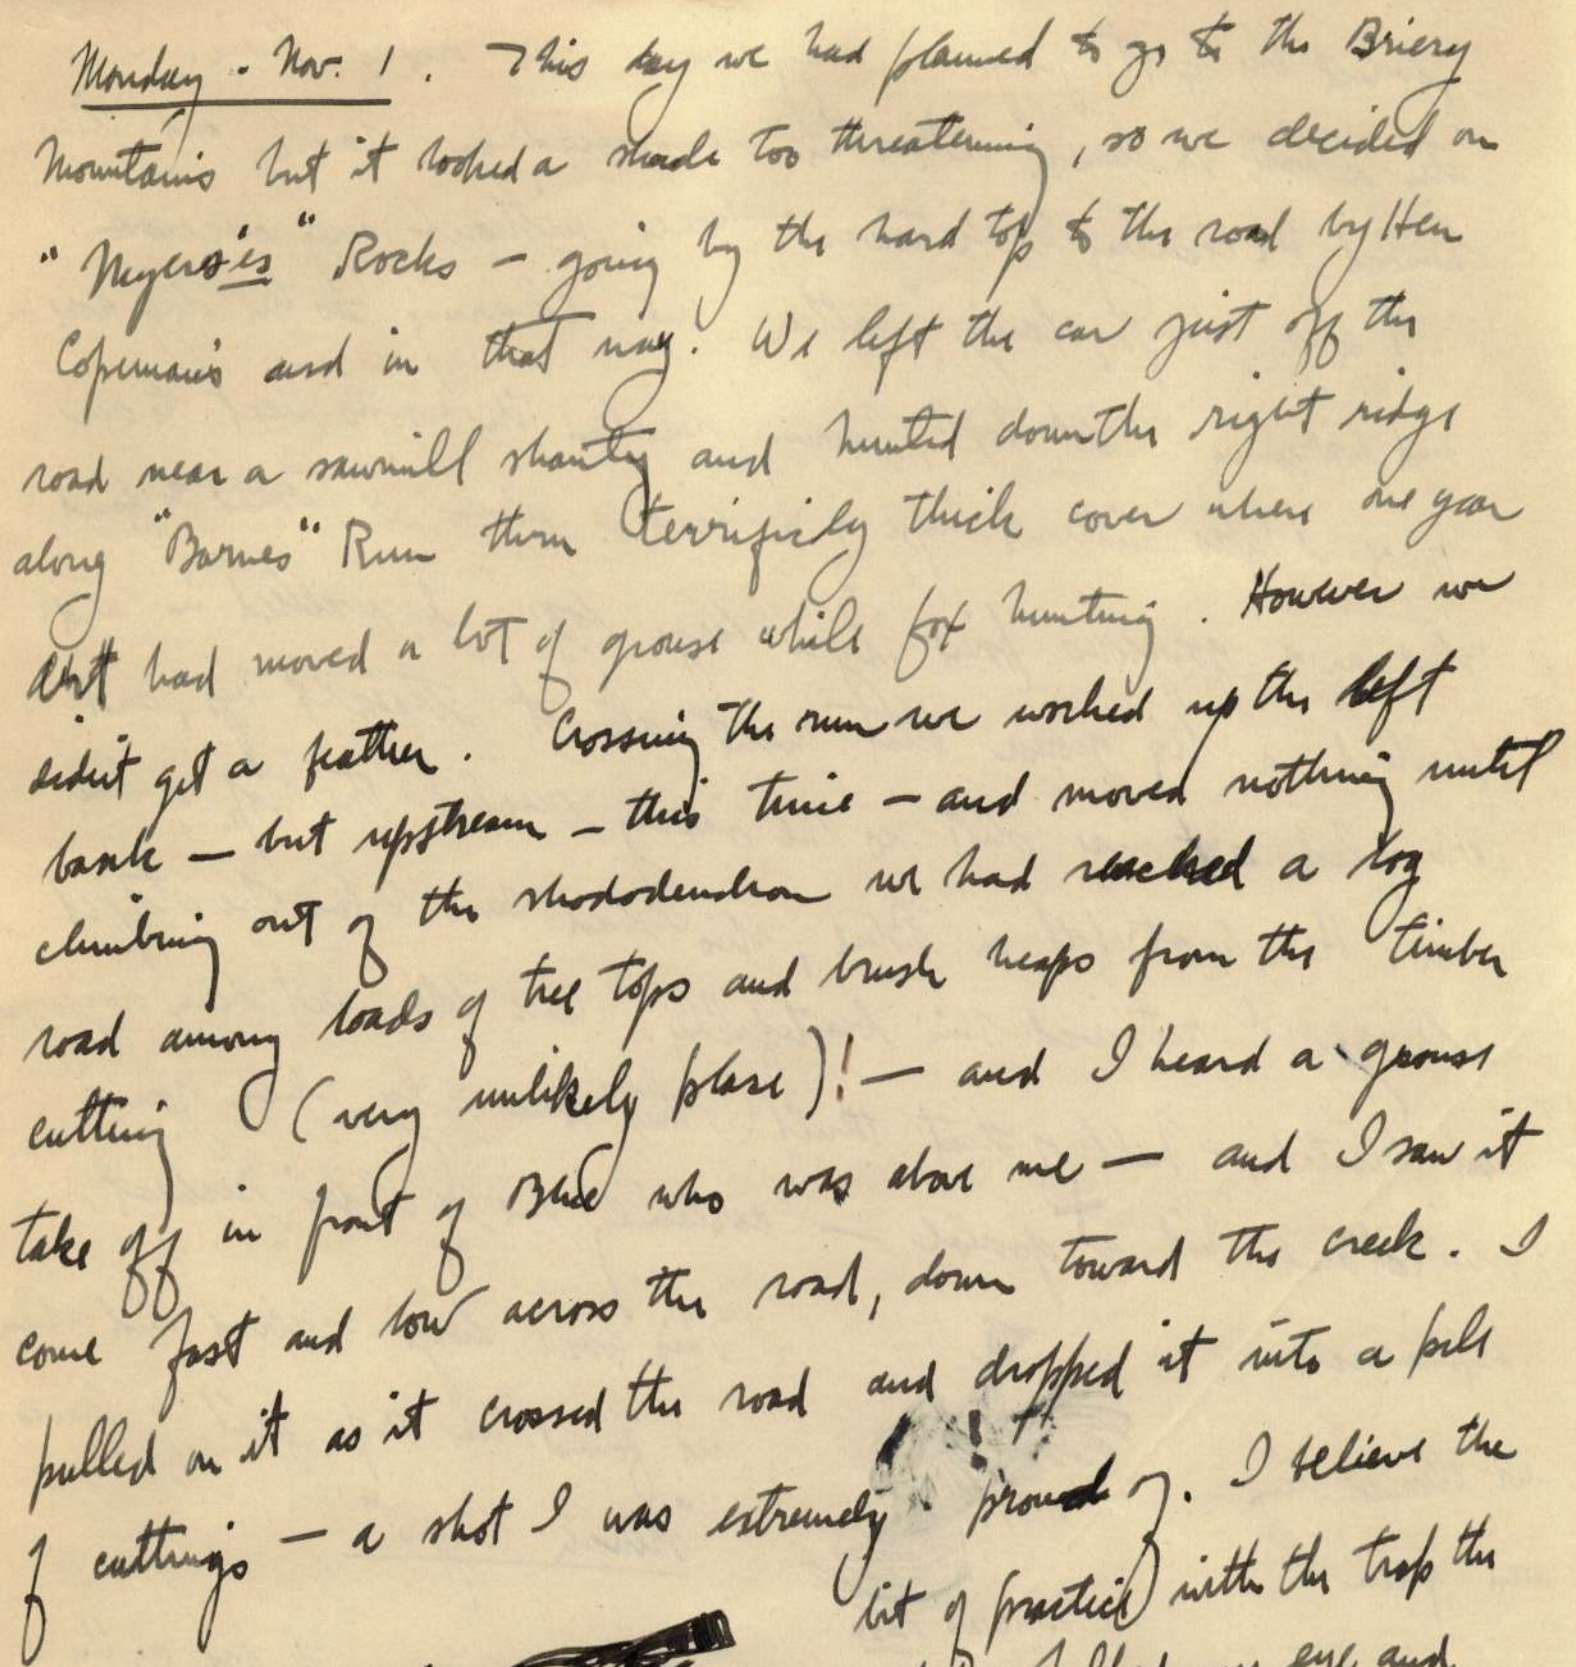 Monday - Nov. 1. This day we had planned to go to the Briery
Mountains but it looked a shade too threatening, so we decided on
"Myers'es" Rocks - going by the hard top to the road by Hen
Copeman's and in that way. We left the car just off the
road near a sawmill shanty and hunted down the right ridge
along "Barnes" Run thru terrificly thick cover where one year
had moved a lot of grouse while fox hunting. However we
didn't get a feather. Crossing the run we worked up the left
bank - but upstream - this time - and moved nothing until
climbing out of the rhododendron we had reached a log
road among loads of tree tops and brush heaps from the timber
cutting (very unlikely place)! - and I heard a grouse
take off in front of Blue who was above me - and I saw it
come fast and low across the road, down toward the creek. I
pulled on it as it crossed the road and dropped it into a pile
of cuttings - a shot I was extremely proud of. I believe the
bit of practice with the trap the
eye and